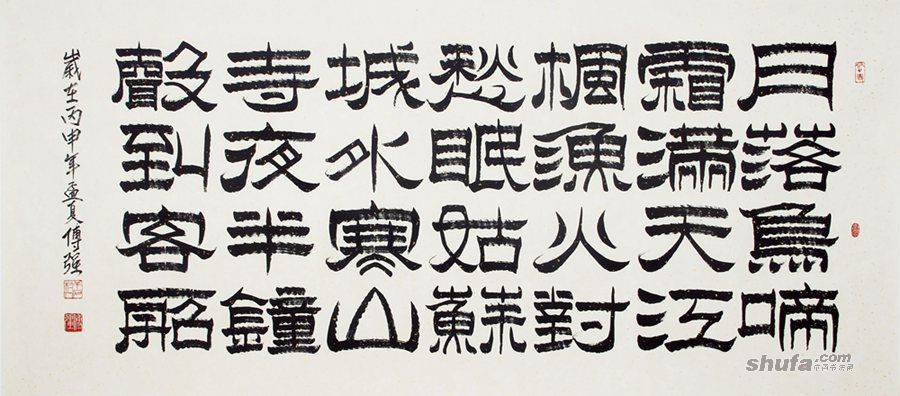 月落烏啼
霜滿天江
楓漁火對
愁眠姑蘇
城外寒山
寺夜半鐘
聲到客船
歲在丙申年孟夏傅强
shufa.com